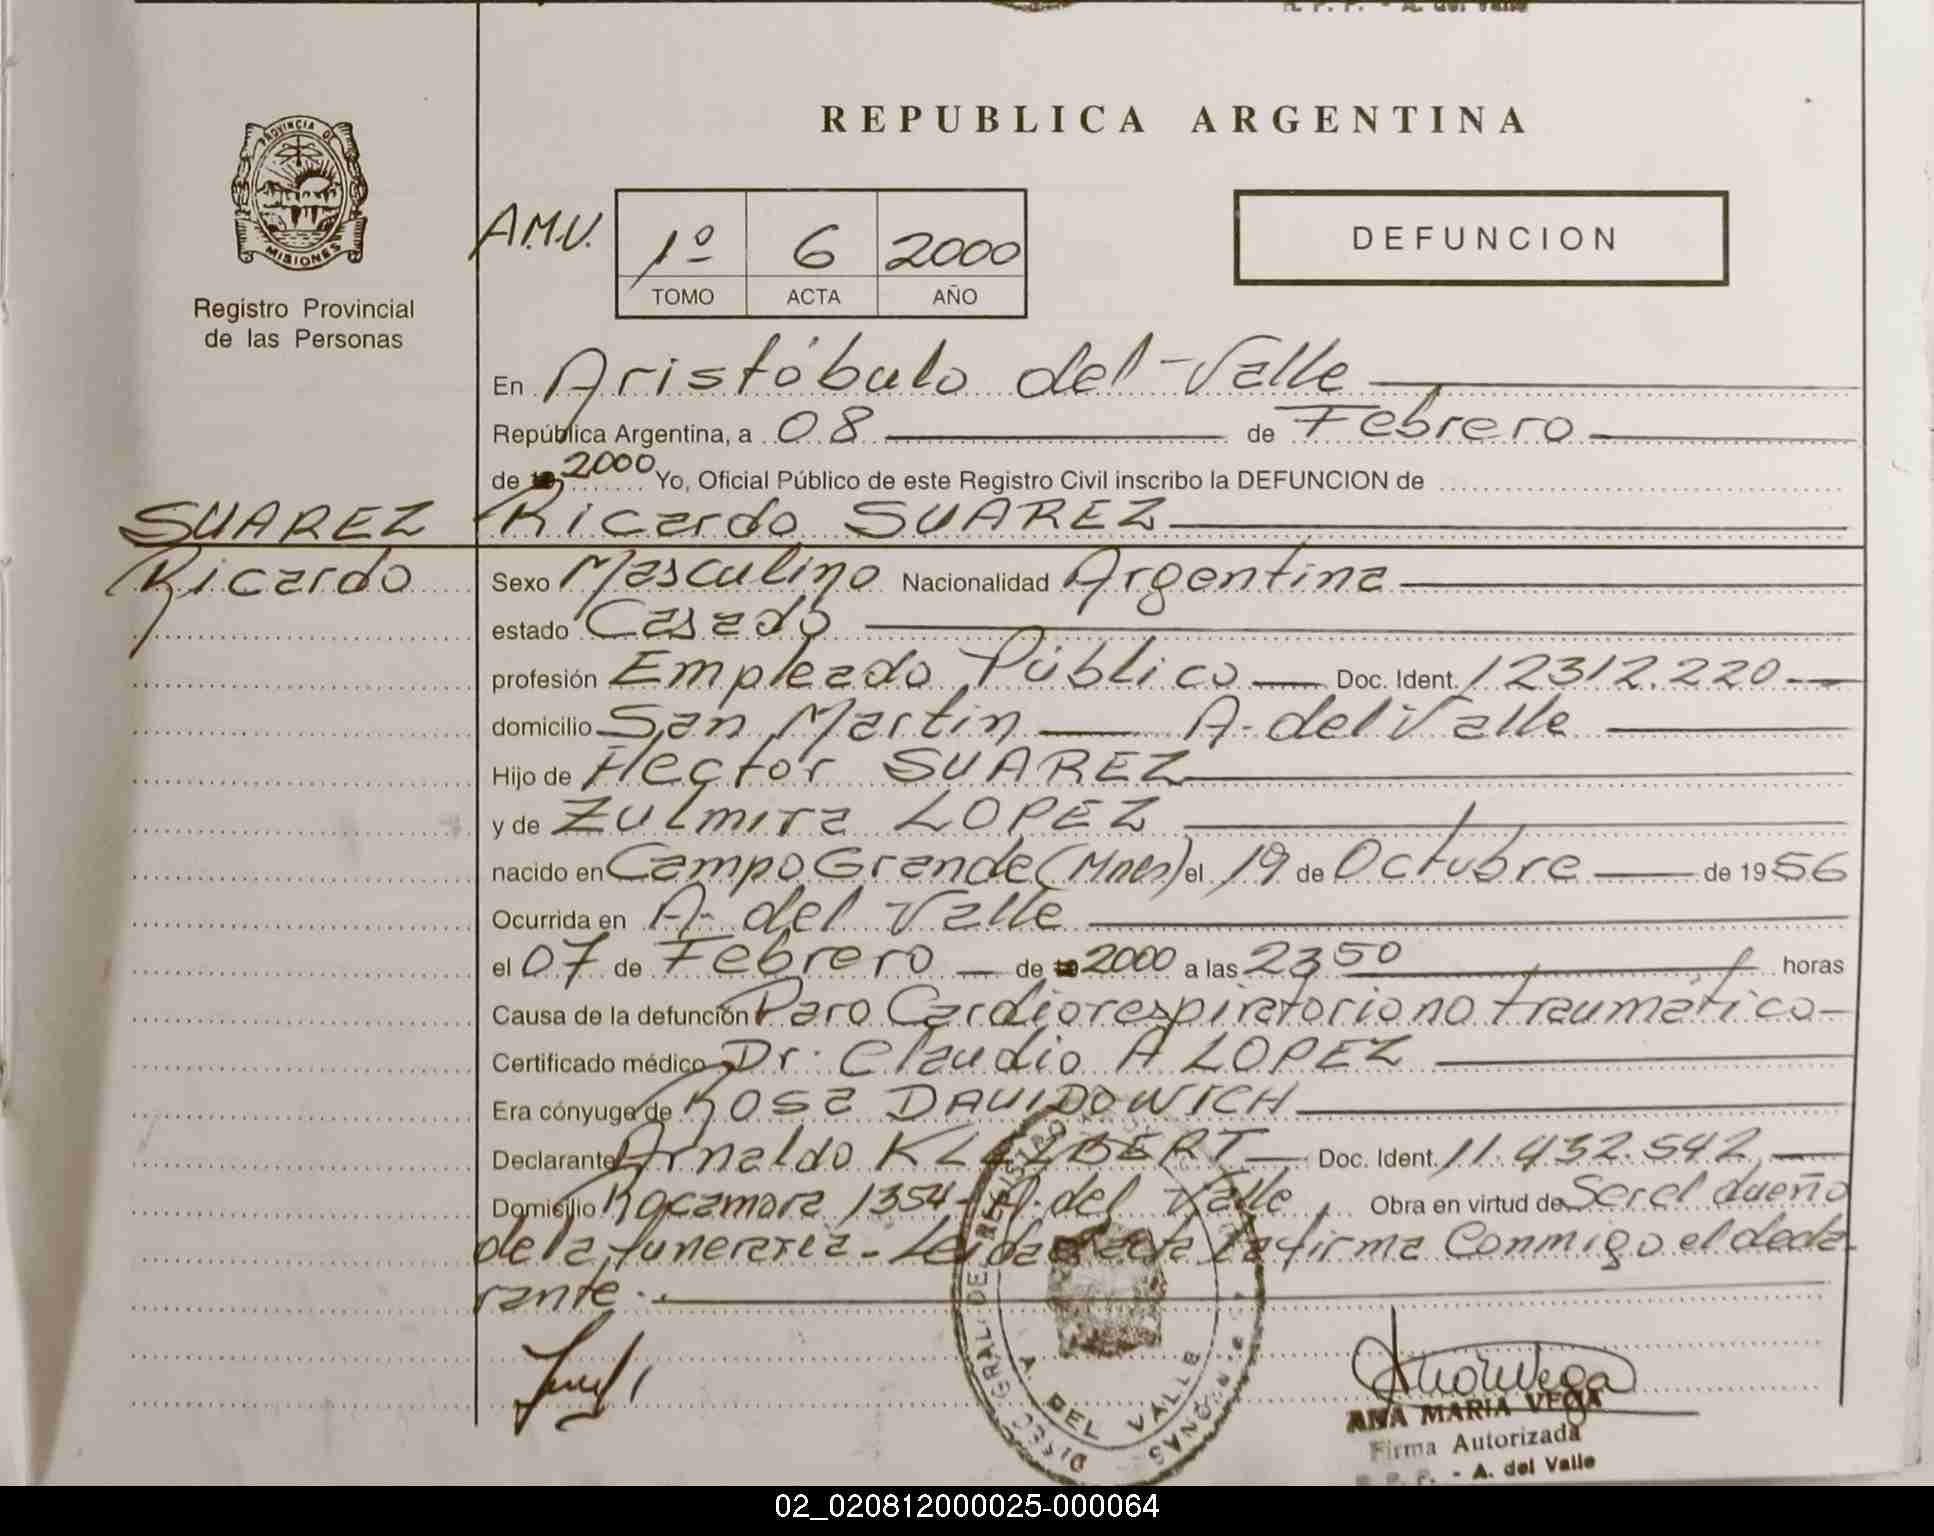 R. P. P. - A. del Valle
REPUBLICA ARGENTINA
PROVINCIA DE
MISIONES
Registro Provincial
de las Personas
A.M.V. 1º 6 2000
TOMO ACTA AÑO
DEFUNCION
En Aristóbulo del Valle
República Argentina, a 08 de Febrero
de 2000 Yo, Oficial Público de este Registro Civil inscribo la DEFUNCION de
SUAREZ Ricardo SUAREZ
Ricardo Sexo Masculino Nacionalidad Argentina
estado Casado
profesión Empleado Público Doc. Ident. 12312.220
domicilio San Martin A. del Valle
Hijo de Hector SUAREZ
y de Zulmira LOPEZ
nacido en Campo Grande (Mnes) el 19 de Octubre de 1956
Ocurrida en A. del Valle
el 07 de Febrero de 2000 a las 23 50 horas
Causa de la defunción Paro Cardiorespiratorio no traumático
Certificado médico Dr. Claudio A LOPEZ
Era cónyuge de Rosa DAVIDOWICH
Declarante Arnaldo Doc. Ident. 11.432.542
Domicilio Rocamora 1354 - A. del Valle Obra en virtud de Ser el dueño
de la funeraria - Leida el acta la firma Conmigo el decla-
rante.
A. DEL VALLE
ANA MARIA VEGA
Firma Autorizada
R. P. P. - A. del Valle
02_020812000025-000064